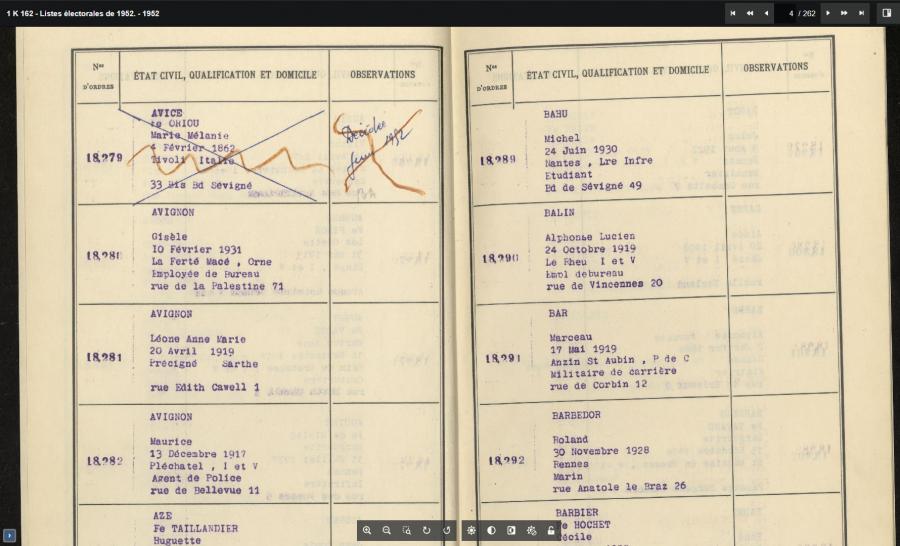 1 K 162 - Listes électorales de 1952. - 1952
4 / 262
Nos
D'ORDRES
ÉTAT CIVIL, QUALIFICATION ET DOMICILE
OBSERVATIONS
18,279
AVICE
Fe ORIOU
Marie Mélanie
4 Février 1862
Tivoli Italie
33 Bis Bd Sévigné
Décédée
1952
18,280
AVIGNON
Gisèle
10 Février 1931
La Ferté Macé , Orne
Employée de Bureau
rue de la Palestine 71
18,281
AVIGNON
Léone Anne Marie
20 Avril 1919
Précigné Sarthe
rue Edith Cavell 1
18,282
AVIGNON
Maurice
13 Décembre 1917
Pléchatel , I et V
Agent de Police
rue de Bellevue 11
AZE
Fe TAILLANDIER
Huguette
Nos
D'ORDRES
ÉTAT CIVIL, QUALIFICATION ET DOMICILE
OBSERVATIONS
18,289
BAHU
Michel
24 Juin 1930
Nantes , Lre Infre
Etudiant
Bd de Sévigné 49
18,290
BALIN
Alphonse Lucien
24 Octobre 1919
Le Rheu I et V
Empl debureau
rue de Vincennes 20
18,291
BAR
Marceau
17 Mai 1919
Anzin St Aubin , P de C
Militaire de carrière
rue de Corbin 12
18,292
BARBEDOR
Roland
30 Novembre 1928
Rennes
Marin
rue Anatole le Braz 26
BARBIER
Fe HOCHET
Cécile